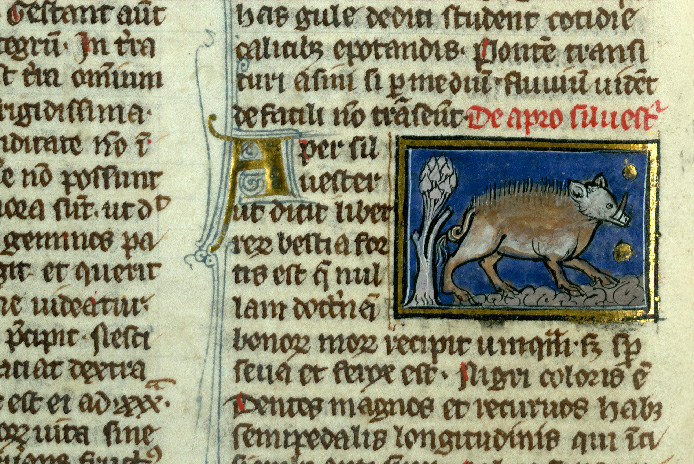 Gestant aut
tegrū. In t̄ra
st t̄ra omnium
frigidissima.
nditate nō ī
e nō possunt
nora sūt. ut d
geminos pa
git et querit
ne uideatur.
p̄cipit. si esti
aciat dextra
est ei ad xxx.
uita sine
has gule dediti student cotidie
calicibꝫ epotandis. Pontē transi
turi asini si ꝑ mediū fluuiū uidēt
de facili nō trāseūt. De apro siluest
Aper sil
uester
ut dicit liber
reꝝ bestia for
tis est q̄ nul
lam doct̄nā
bonoꝝ moꝝ recipit umq̄m. sꝫ sp̄
seua et ferox est. Nigri coloris ē
Dentes magnos et recuruos habꝫ
semipedalis longitudinis qui īci